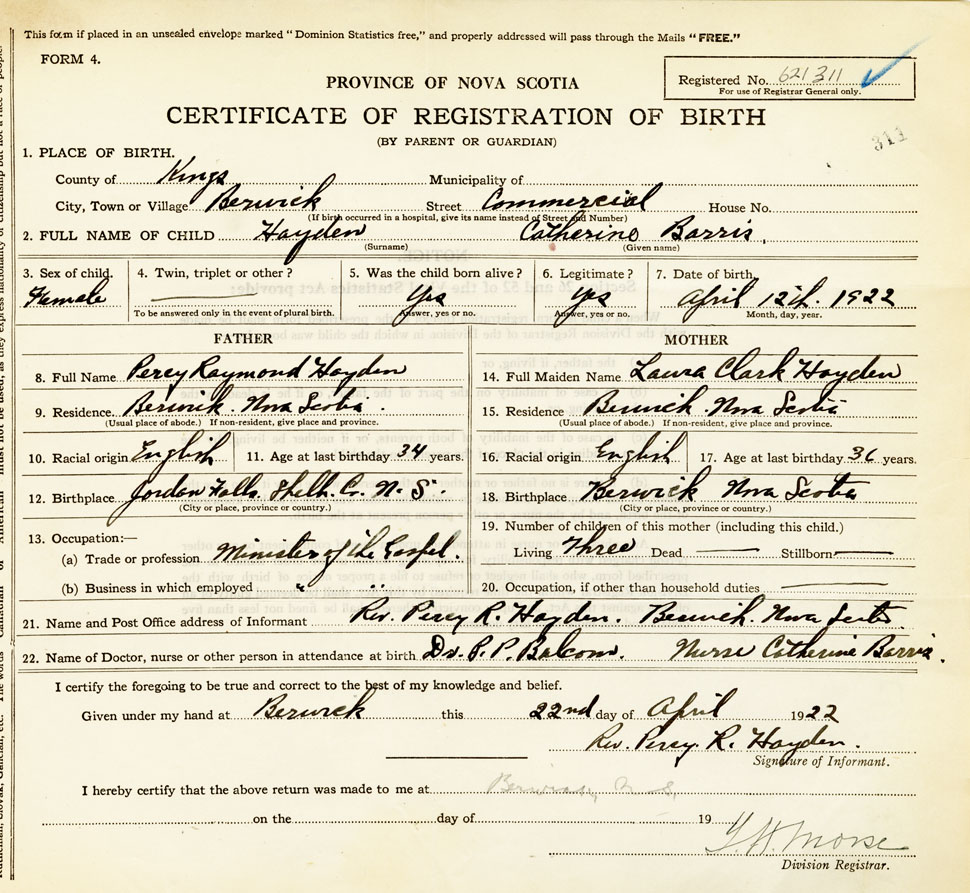 This form if placed in an unsealed envelope marked "Dominion Statistics free," and properly addressed will pass through the Mails "FREE."
FORM 4.
Registered No. 621311
For use of Registrar General only.
PROVINCE OF NOVA SCOTIA
CERTIFICATE OF REGISTRATION OF BIRTH
311
(BY PARENT OR GUARDIAN)
1. PLACE OF BIRTH.
County of Kings Municipality of
City, Town or Village Berwick Street Commercial House No.
(If birth occurred in a hospital, give its name instead of Street and Number)
2. FULL NAME OF CHILD Hayden Catherine Barris,
(Surname) (Given name)
3. Sex of child. 4. Twin, triplet or other? 5. Was the child born alive? 6. Legitimate? 7. Date of birth
Female Yes Yes April 12th. 1922
To be answered only in the event of plural birth. Answer, yes or no. Answer, yes or no. Month, day, year.
FATHER MOTHER
8. Full Name Percy Raymond Hayden 14. Full Maiden Name Laura Clark Hayden
9. Residence. Berwick. Nova Scotia. 15. Residence Berwick. Nova Scotia
(Usual place of abode.) If non-resident, give place and province. (Usual place of abode.) If non-resident, give place and province.
10. Racial origin English 11. Age at last birthday 34 years. 16. Racial origin English 17. Age at last birthday 36 years.
12. Birthplace Jordan Falls. Shelb. Co. N. S. 18. Birthplace Berwick Nova Scotia
(City or place, province or country.) (City or place, province or country.)
13. Occupation:— 19. Number of children of this mother (including this child.)
(a) Trade or profession Minister of the Gospel. Living Three Dead Stillborn
(b) Business in which employed " " 20. Occupation, if other than household duties
21. Name and Post Office address of Informant Rev. Percy R. Hayden. Berwick. Nova Scotia.
22. Name of Doctor, nurse or other person in attendance at birth Dr. P. P. Balcom. Nurse Catherine Barris.
I certify the foregoing to be true and correct to the best of my knowledge and belief.
Given under my hand at Berwick this 22nd day of April 1922
Rev. Percy R. Hayden.
Signature of Informant.
I hereby certify that the above return was made to me at Berwick, N. S.
on the day of 19
Division Registrar.